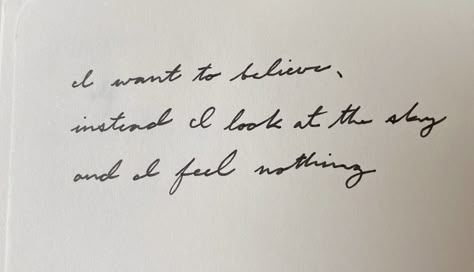 I want to believe,
instead I look at the sky
and I feel nothing